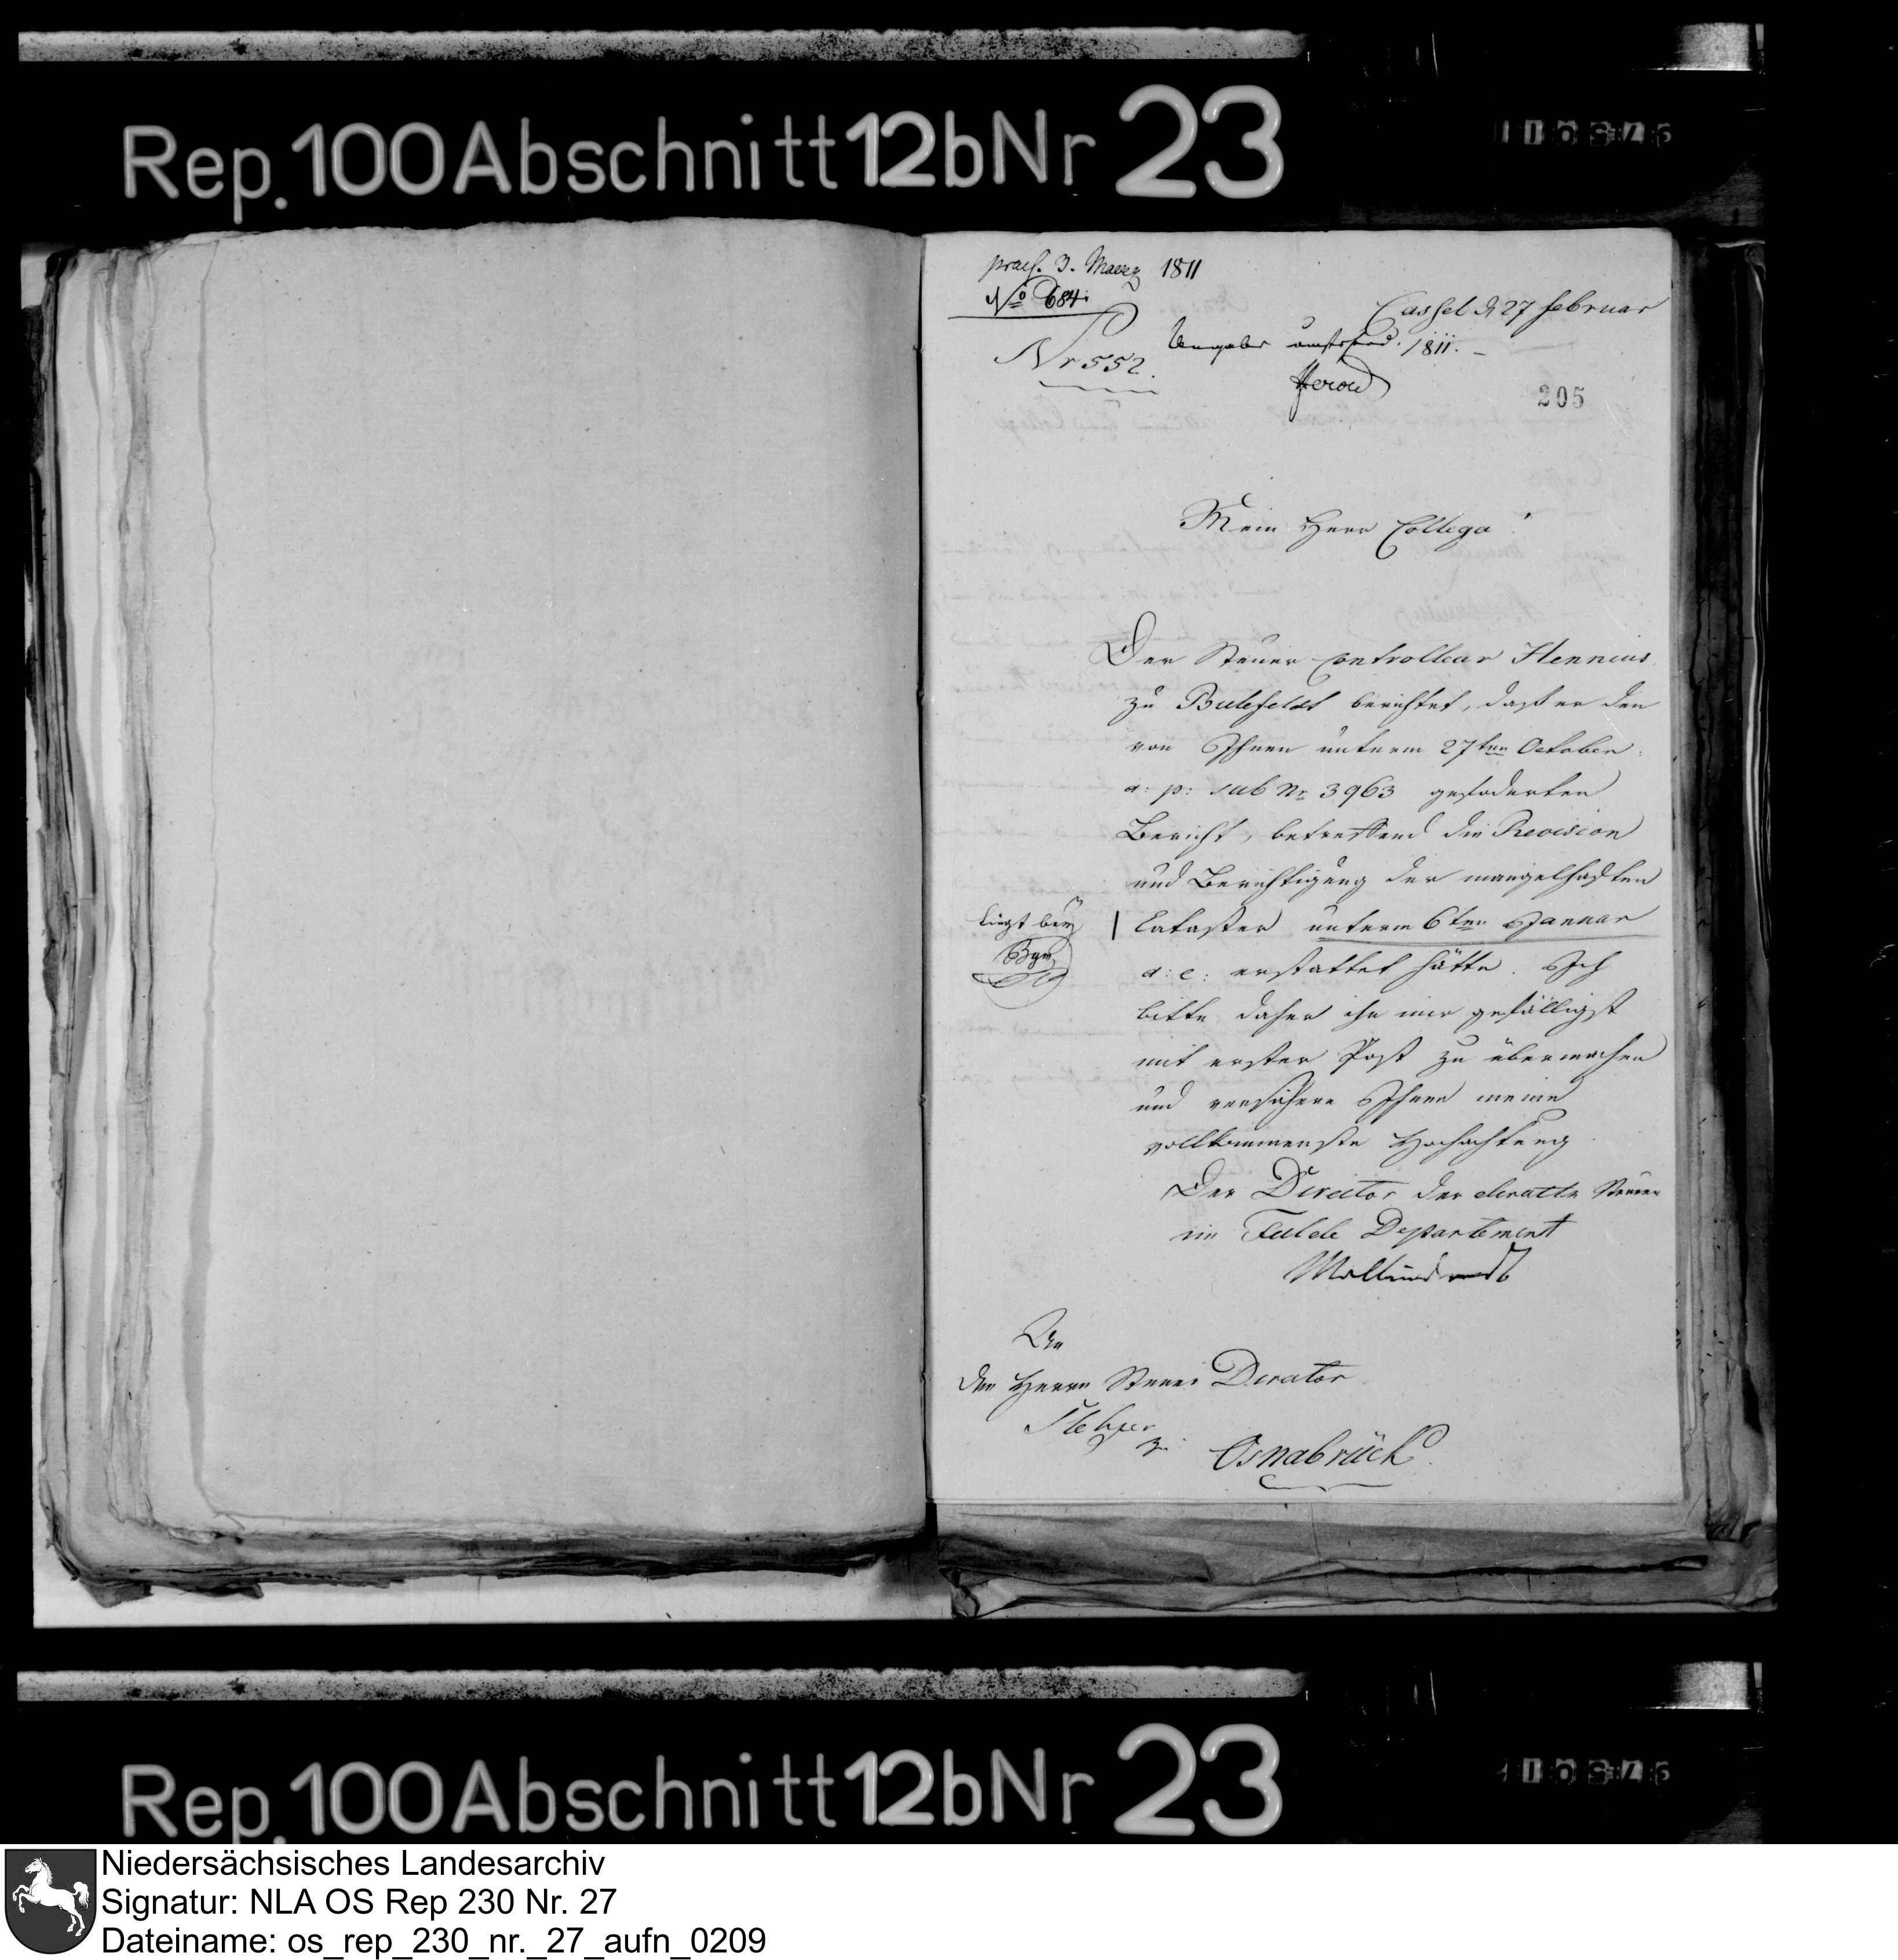 Rep. 100 Abschnitt 12b Nr 23
praes. 3. Maerz 1811
No 684.
Cassel d 27 Februar
1811.
Nr 552.
205
Mein Herr College!
Der Steuer Controlleur Hennius
zu Bielefeldt berichtet, daß er den
von Ihnen unterm 27ten October
a: p: sub Nr 3963 gefoderten
Bericht, betreffend die Revision
und Berichtigung der mangelhaften
liegt bey
Cataster unterm 6ten Januar
a: c: erstattet hätte. Ich
bitte daher ihn mir gefälligst
mit erster Post zu übermachen
und versichere Ihnen meine
vollkommenste Hochachtung
Der Director der directen Steuern
im Fulda Departement
An
den Herrn Steuer Director
zu Osnabrück.
Rep. 100 Abschnitt 12b Nr 23
Niedersächsisches Landesarchiv
Signatur: NLA OS Rep 230 Nr. 27
Dateiname: os_rep_230_nr._27_aufn_0209